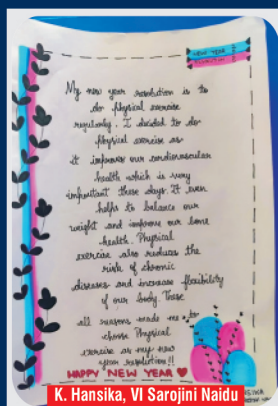 NEW YEAR
My new year resolution is to
do Physical exercise
regularly. I decided to do
physical exercise as
it improves our cardiovascular
health which is very
important these days. It even
helps to balance our
weight and improve our bone
health. Physical
exercise also reduces the
risk of chronic
diseases and increase flexibility
of our body. These
all reasons made me to
choose Physical
exercise as my new
year resolution!!
HAPPY NEW YEAR
K. Hansika, VI Sarojini Naidu